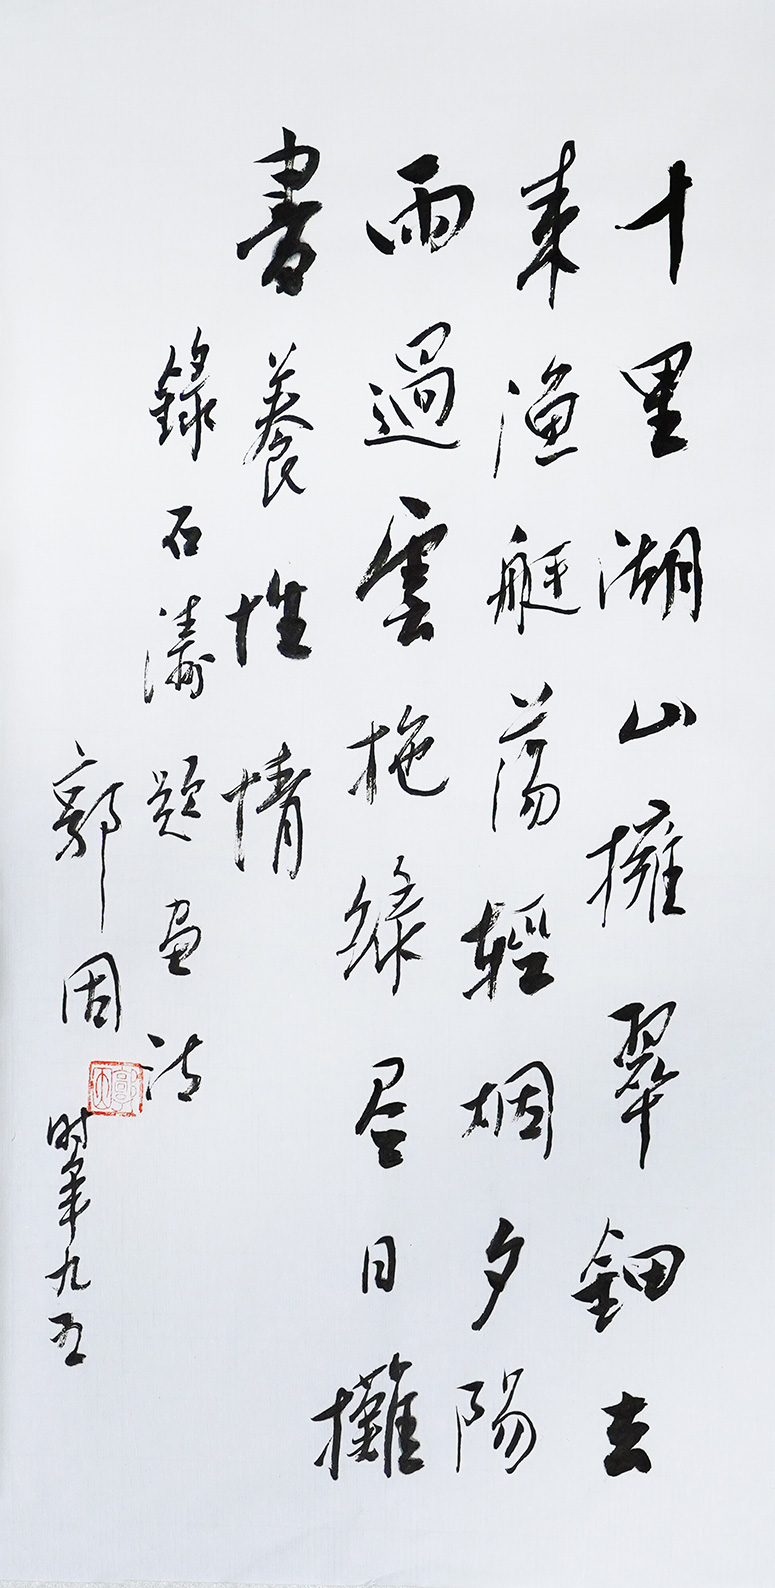 十里湖山擁翠鈿去
來漁艇蕩輕烟夕陽
雨過雲拖綠尽日攤
書養性情
錄石濤題画诗
郭因
时年九五